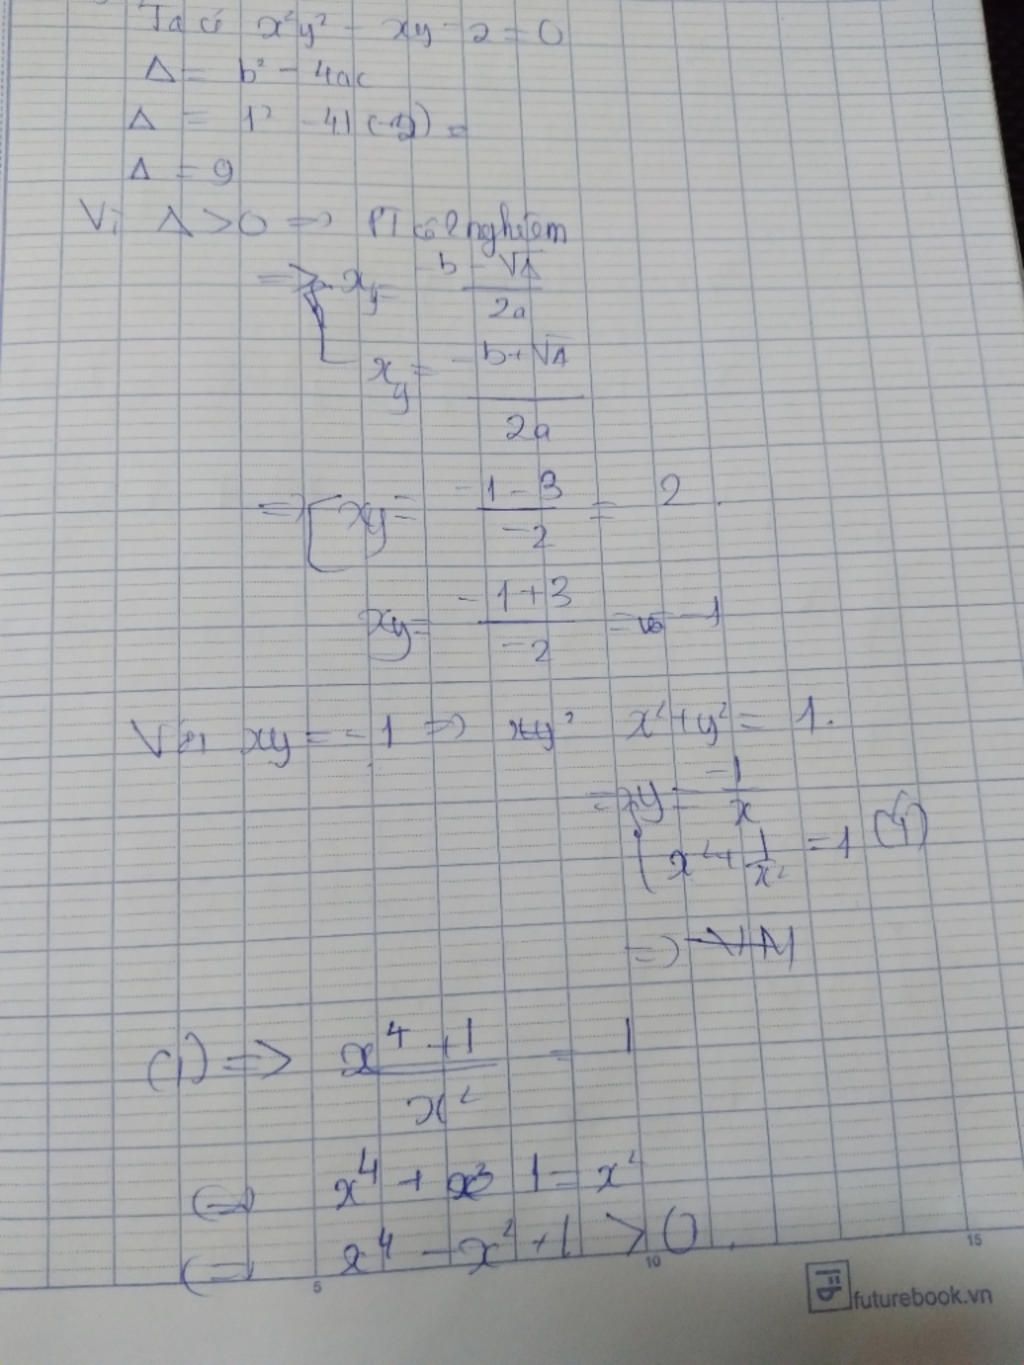 Ta có x²y² - xy - 2 = 0
Δ = b² - 4ac
Δ = 1² - 4.1(-2) =
Δ = 9
Vì Δ > 0 => PT có 2 nghiệm
=> xy = -b - √Δ / 2a
xy = -b + √Δ / 2a
=> [ xy = -1 - 3 / -2 = 2
xy = -1 + 3 / -2 = -1
Với xy = -1 => x² + y² = 1.
=> { y = -1 / x
x² + 1 / x² = 1 (1)
=> VN
(1) => x⁴ + 1 / x² = 1
<=> x⁴ + 1 = x²
<=> x⁴ - x² + 1 > 0.
5 10 15
futurebook.vn